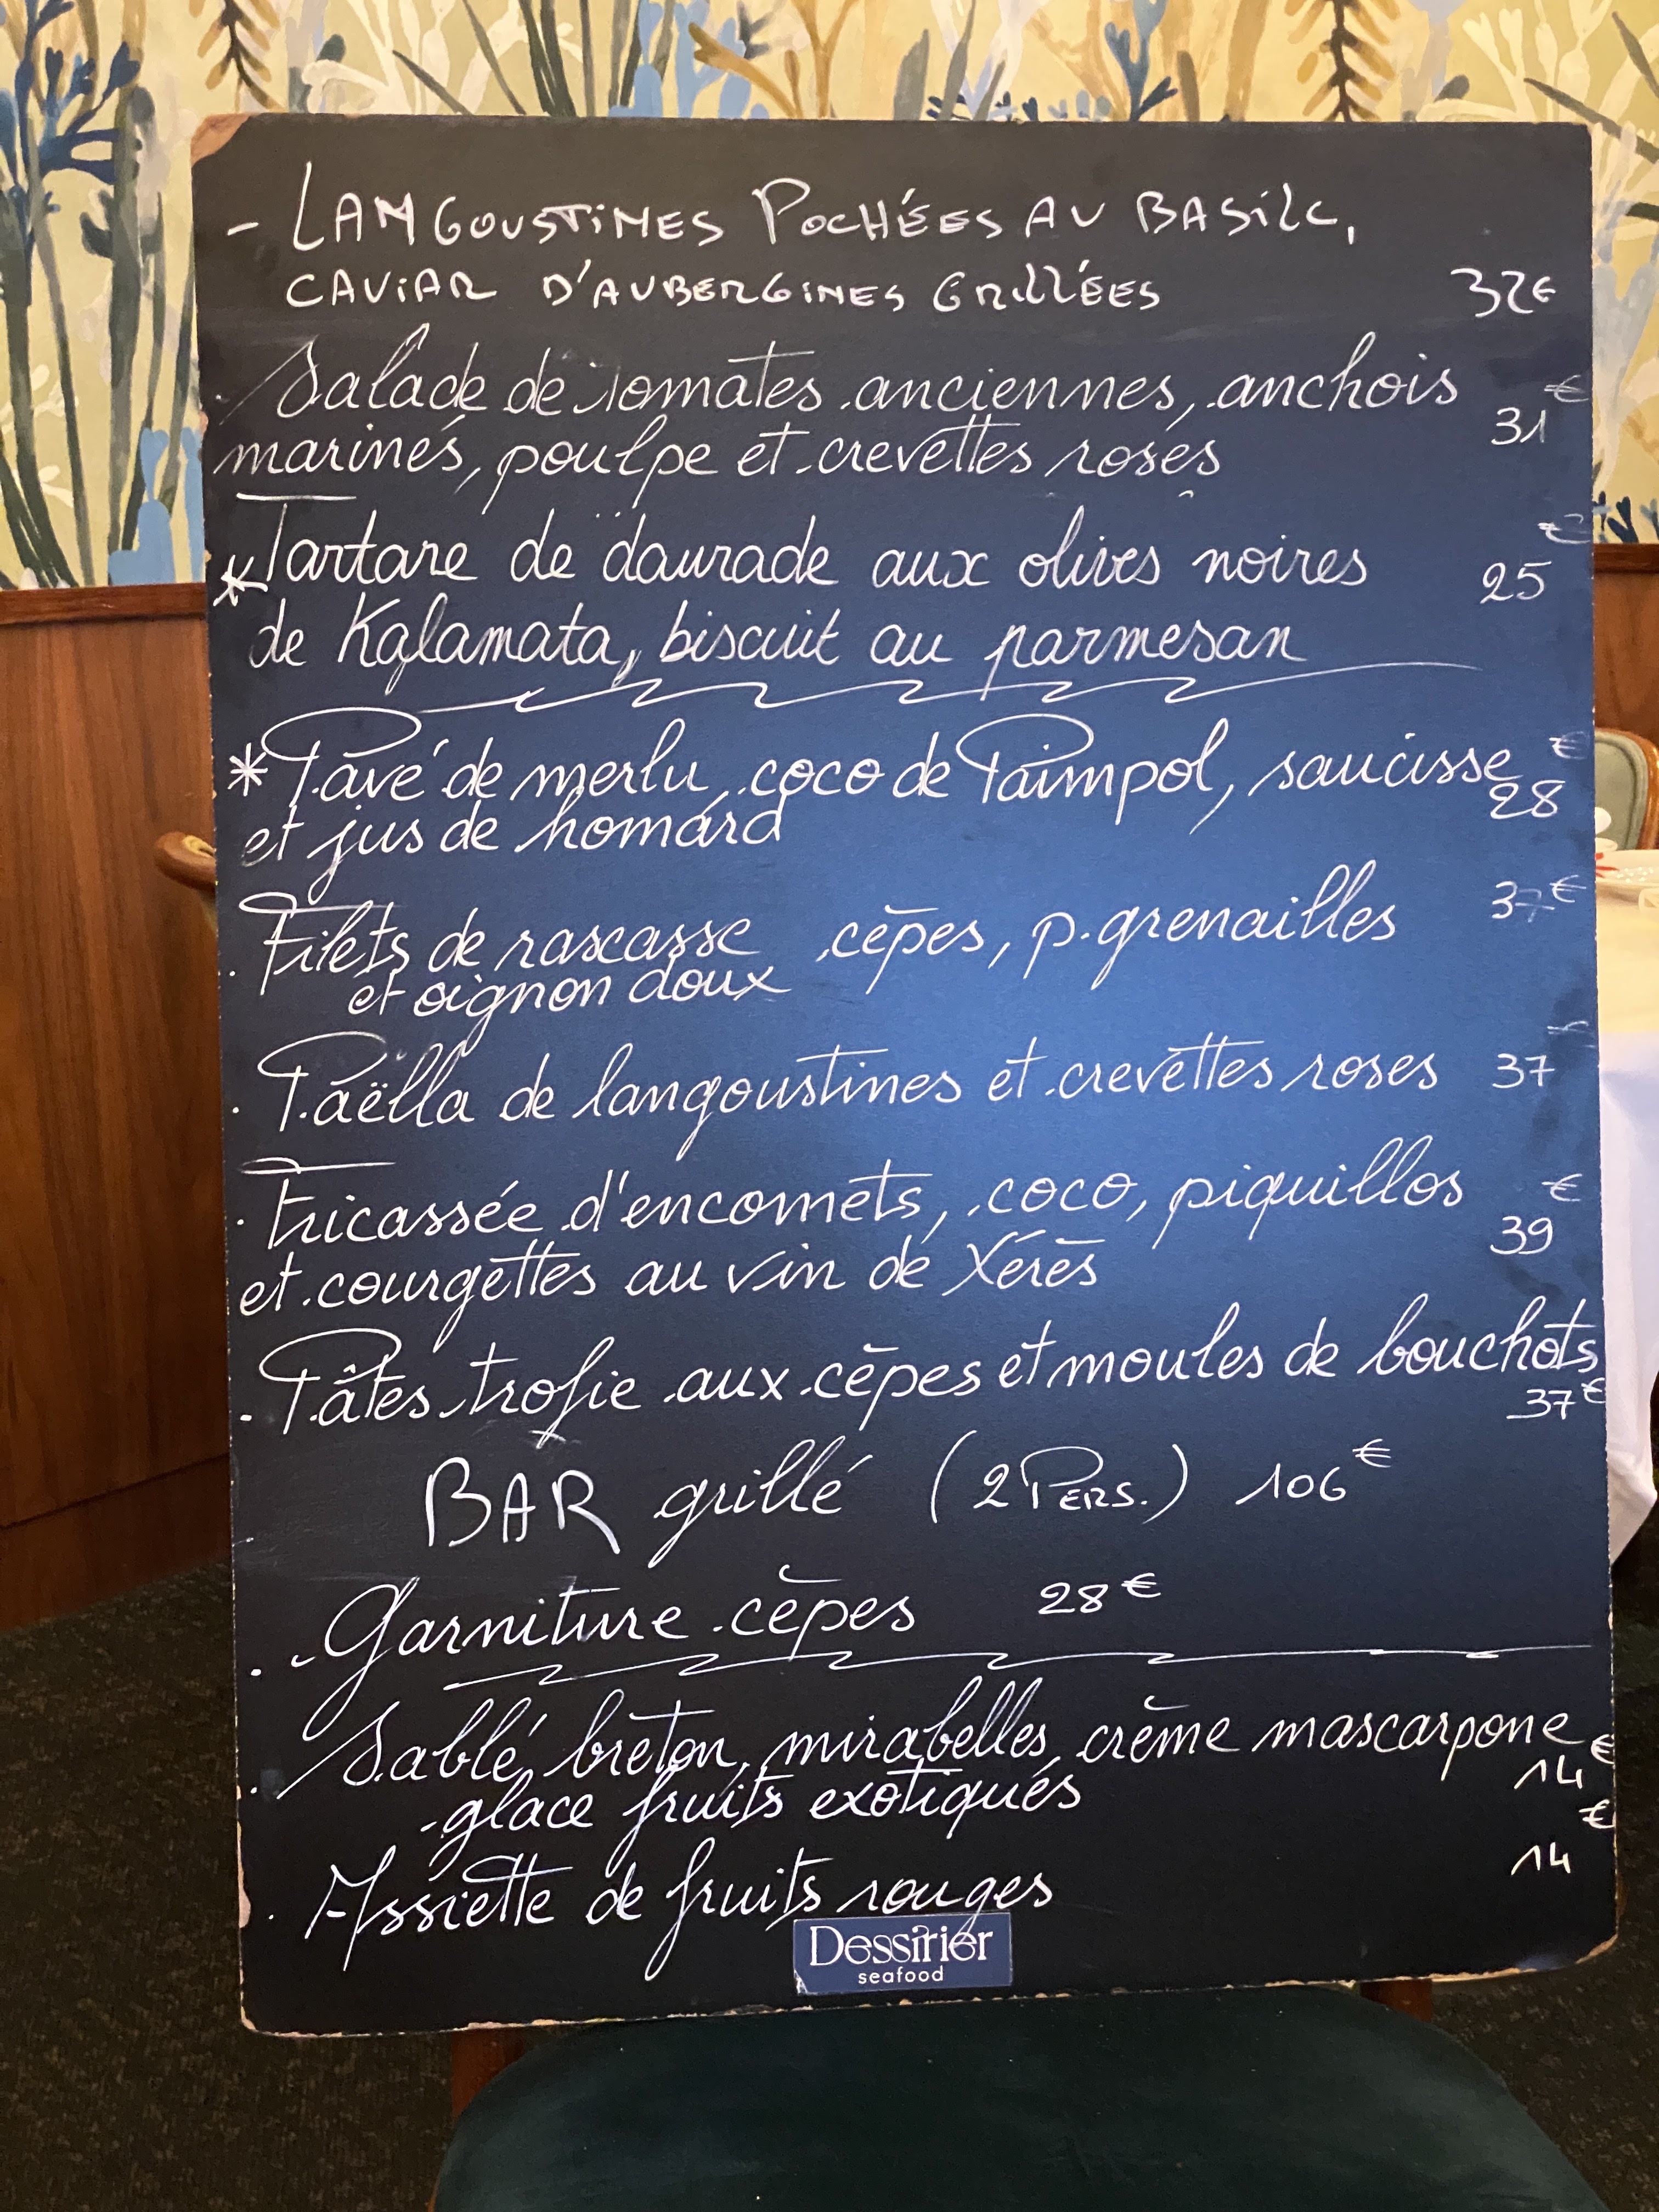 - LANGOUSTINES POCHÉES AU BASILC,
CAVIAR D'AUBERGINES GRILLÉES 32€
. Salade de tomates anciennes, anchois €
marinés, poulpe et crevettes roses 31
* Tartare de daurade aux olives noires € 25
de Kalamata, biscuit au parmesan
* Pavé de merlu, coco de Paimpol, saucisse €
et jus de homard 28
. Filets de rascasse, cèpes, p. grenailles 37€
et oignon doux
. Paëlla de langoustines et crevettes roses 37
. Fricassée d'encornets, coco, piquillos €
et courgettes au vin de Xérès 39
. Pâtes trofie aux cèpes et moules de bouchots
37€
BAR grillé (2 PERS.) 106€
. Garniture cèpes 28€
. Sablé breton, mirabelles, crème mascarpone €
- glace fruits exotiques 14
. Assiette de fruits rouges 14 €
Dessirier
seafood